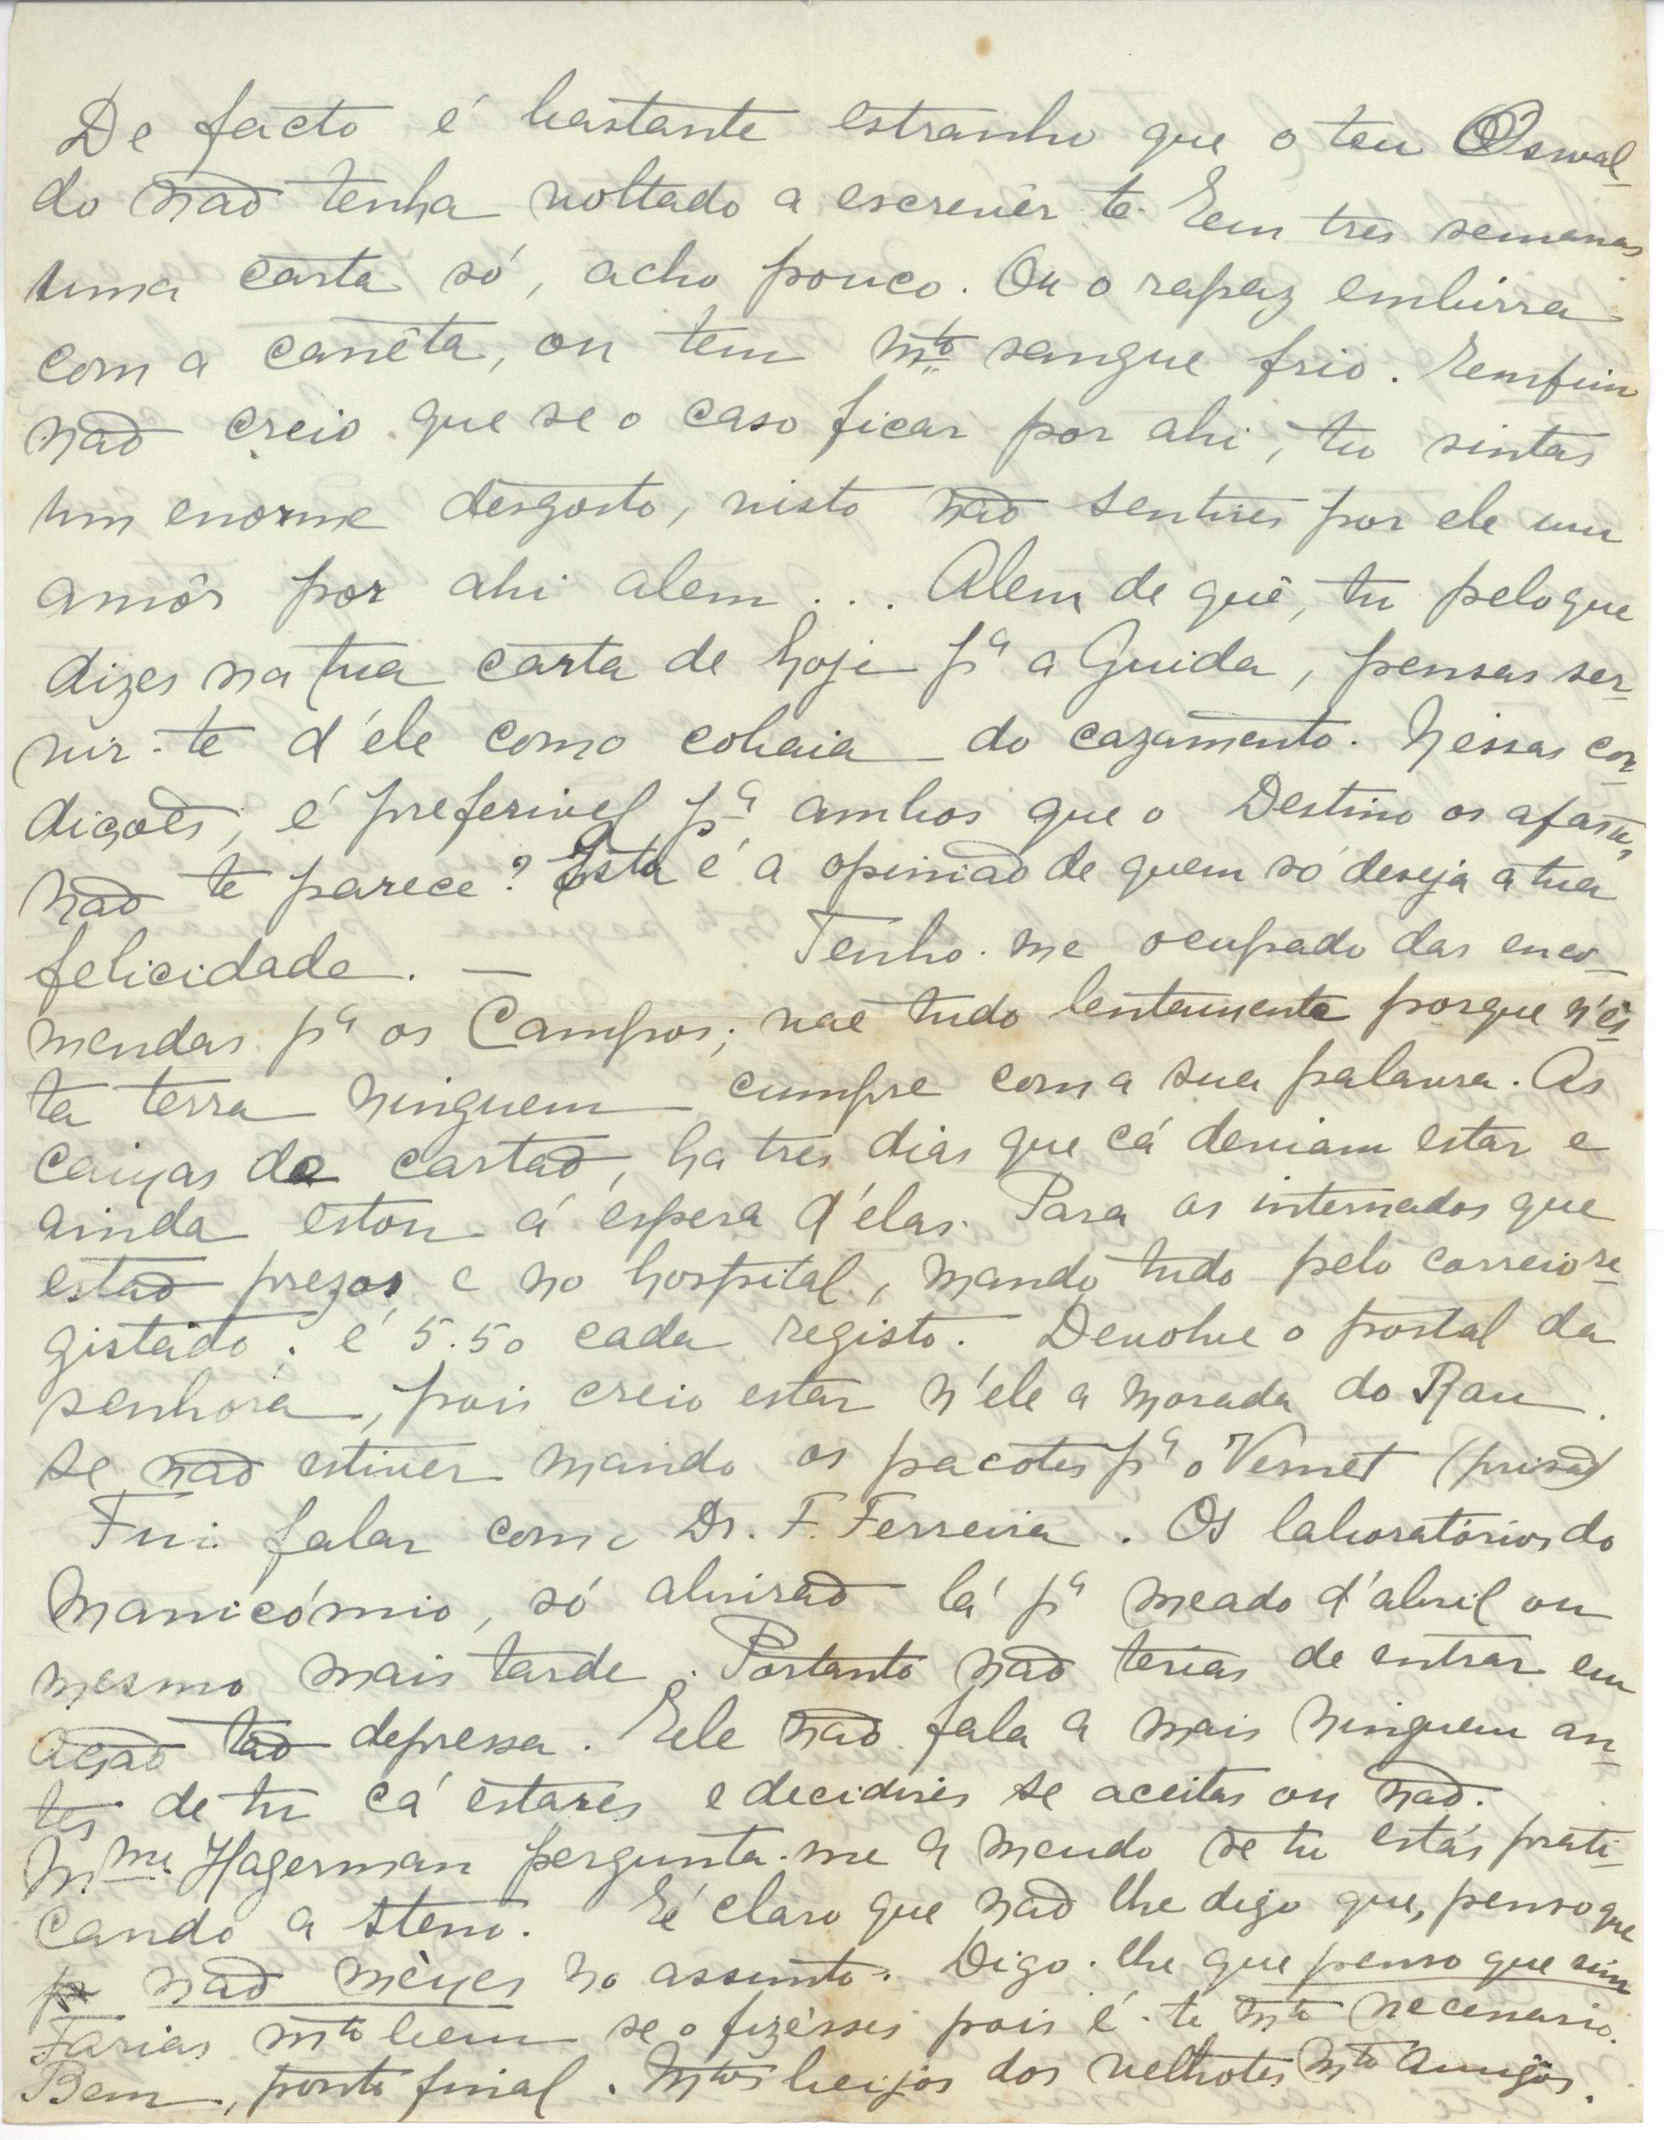 De facto é bastante estranho que o teu Oswal-
do não tenha voltado a escrevêr-te. Em tres semanas
uma carta só, acho pouco. Ou o rapaz embirra
com a canêta, ou tem mto sangue frio. Emfim
não creio que se o caso ficar por ahi, tu sintas
um enorme desgosto, visto não sentires por ele um
amôr por ahi alem... Alem de quê, tu pelo que
dizes na tua carta de hoje pa a Guida, pensas ser-
vir-te d'éle como cobaia do cazamento. Nessas con-
dições, é preferivel pa ambos que o Destino os afaste,
não te parece? Esta é a opinião de quem só deseja a tua
felicidade. — Tenho-me ocupado das enco-
mendas pa os Campos; vae tudo lentamente porque n'es-
ta terra ninguem cumpre com a sua palavra. As
caixas de cartão, ha tres dias que cá deviam estar e
ainda estou á espera d'élas. Para os internados que
estão prezos e no hospital, mando tudo pelo correio re-
gistado. é 5.50 cada registo. Devolve o postal da
senhora, pois creio estar n'ele a morada do Rau.
Se não estiver mando os pacotes pa o Vernet (prisão)
Fui falar com o Dr. F. Ferreira. Os laboratórios do
Manicómio, só abrirão lá pa meado d'abril ou
mesmo mais tarde. Portanto não terias de entrar em
ação tão depressa. Ele não fala a mais ninguem an-
tes de tu cá estares e decidires se aceitas ou não.
Mme Hagerman pergunta-me a meudo se tu estás prati-
cando a steno. É claro que não lhe digo que, penso que
não mexes no assunto. Digo-lhe que penso que sim
Farias mto bem se o fizésses pois é-te mto necessario.
Bem, ponto final. Mtos beijos dos velhotes Mto Amigos.